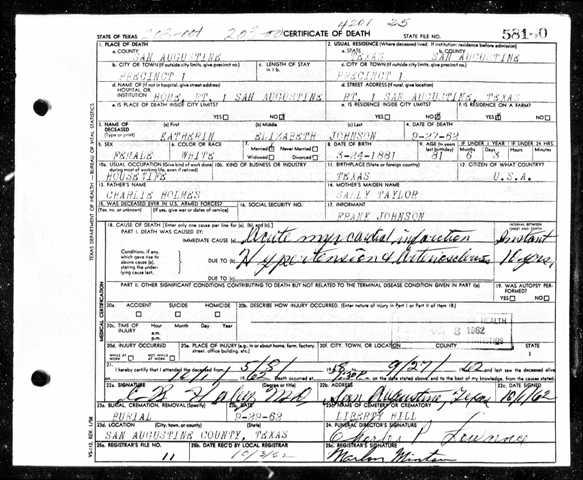 4201 25
STATE OF TEXAS
CERTIFICATE OF DEATH
STATE FILE NO.
1. PLACE OF DEATH
2. USUAL RESIDENCE (Where deceased lived. If institution: residence before admission)
a. COUNTY
SAN AUGUSTINE
a. STATE
TEXAS
b. COUNTY
SAN AUGUSTINE
b. CITY OR TOWN (If outside city limits, give precinct no.)
c. LENGTH OF STAY
c. CITY OR TOWN (If outside city limits, give precinct no.)
PRECINCT 1
PRECINCT 1
d. NAME OF (If not in hospital, give street address)
HOSPITAL OR
INSTITUTION
HOME RT 1 SAN AUGUSTINE
d. STREET ADDRESS (If rural, give location)
RT. 1 SAN AUGUSTINE, TEXAS
e. IS PLACE OF DEATH INSIDE CITY LIMITS?
YES NO
e. IS RESIDENCE INSIDE CITY LIMITS?
YES NO
f. IS RESIDENCE ON A FARM?
YES NO
3. NAME OF DECEASED (Type or print)
(a) First
(b) Middle
(c) Last
4. DATE OF DEATH
KATHERIN ELIZABETH JOHNSON 9-27-62
5. SEX
6. COLOR OR RACE
7. Married Never Married
Widowed Divorced
8. DATE OF BIRTH
9. AGE
IF UNDER 1 YEAR
IF UNDER 24 HRS.
FEMALE WHITE 3-24-1881 81 6 3
10a. USUAL OCCUPATION (Give kind of work done during most of working life, even if retired)
10b. KIND OF BUSINESS OR INDUSTRY
11. BIRTHPLACE (State or foreign country)
12. CITIZEN OF WHAT COUNTRY?
HOUSEWIFE TEXAS U.S.A.
13. FATHER'S NAME
14. MOTHER'S MAIDEN NAME
CHARLIE HOLMES SALLY TAYLOR
15. WAS DECEASED EVER IN U.S. ARMED FORCES?
16. SOCIAL SECURITY NO.
17. INFORMANT
(Yes, no, or unknown) (If yes, give war or dates of service)
FRANK JOHNSON
18. CAUSE OF DEATH [Enter only one cause per line for (a), (b), and (c).]
INTERVAL BETWEEN ONSET AND DEATH
PART I. DEATH WAS CAUSED BY:
IMMEDIATE CAUSE (a) Acute myocardial infarction Instant
Conditions, if any, which gave rise to above cause (a), stating the underlying cause last.
DUE TO (b) Hypertension & Arteriosclerosis
DUE TO (c)
PART II. OTHER SIGNIFICANT CONDITIONS CONTRIBUTING TO DEATH BUT NOT RELATED TO THE TERMINAL DISEASE CONDITION GIVEN IN PART I(a)
19. WAS AUTOPSY PERFORMED?
YES NO
20a. ACCIDENT SUICIDE HOMICIDE
20b. DESCRIBE HOW INJURY OCCURRED. (Enter nature of injury in Part I or Part II of item 18.)
20c. TIME OF INJURY
Hour Month Day Year
a.m.
p.m.
1962
20d. INJURY OCCURRED
WHILE AT WORK NOT WHILE AT WORK
20e. PLACE OF INJURY (e.g., in or about home, farm, factory, street, office building, etc.)
20f. CITY, TOWN, OR LOCATION
COUNTY STATE
21. I hereby certify that I attended the deceased from 9/27/62 and last saw the deceased alive
death occurred at m. on the date stated above, and to the best of my knowledge, from the causes stated.
22a. SIGNATURE (Degree or title)
22b. ADDRESS
22c. DATE SIGNED
San Augustine, Texas 10/1/62
23a. BURIAL, CREMATION, REMOVAL (Specify)
23b. DATE
23c. NAME OF CEMETERY OR CREMATORY
BURIAL 9-29-62 LIBERTY HILL
23d. LOCATION (City, town, or county) (State)
24. FUNERAL DIRECTOR'S SIGNATURE
SAN AUGUSTINE COUNTY, TEXAS
25a. REGISTRAR'S FILE NO.
25b. DATE REC'D BY LOCAL REGISTRAR
25c. REGISTRAR'S SIGNATURE
11 10/3/62
TEXAS DEPARTMENT OF HEALTH — BUREAU OF VITAL STATISTICS
MEDICAL CERTIFICATION